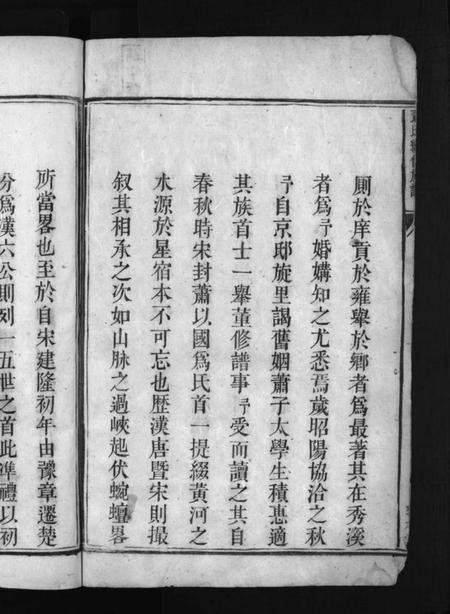 厠於庠貢於雍舉於鄉者爲最著其在秀溪
者爲予婚媾知之尤悉焉歲昭陽協洽之秋
予自京邸旋里謁舊姻蕭子太學生積惠適
其族首士一舉董修譜事予受而讀之其自
春秋時宋封蕭以國爲氏首一提綴黃河之
水源於星宿本不可忘也歷漢唐曁宋則撮
叙其相承之次如山脉之過峽起伏蜿蟺畧
所當畧也至於自宋建隆初年由豫章遷楚
分爲漢六公則列一五世之首此準禮以初